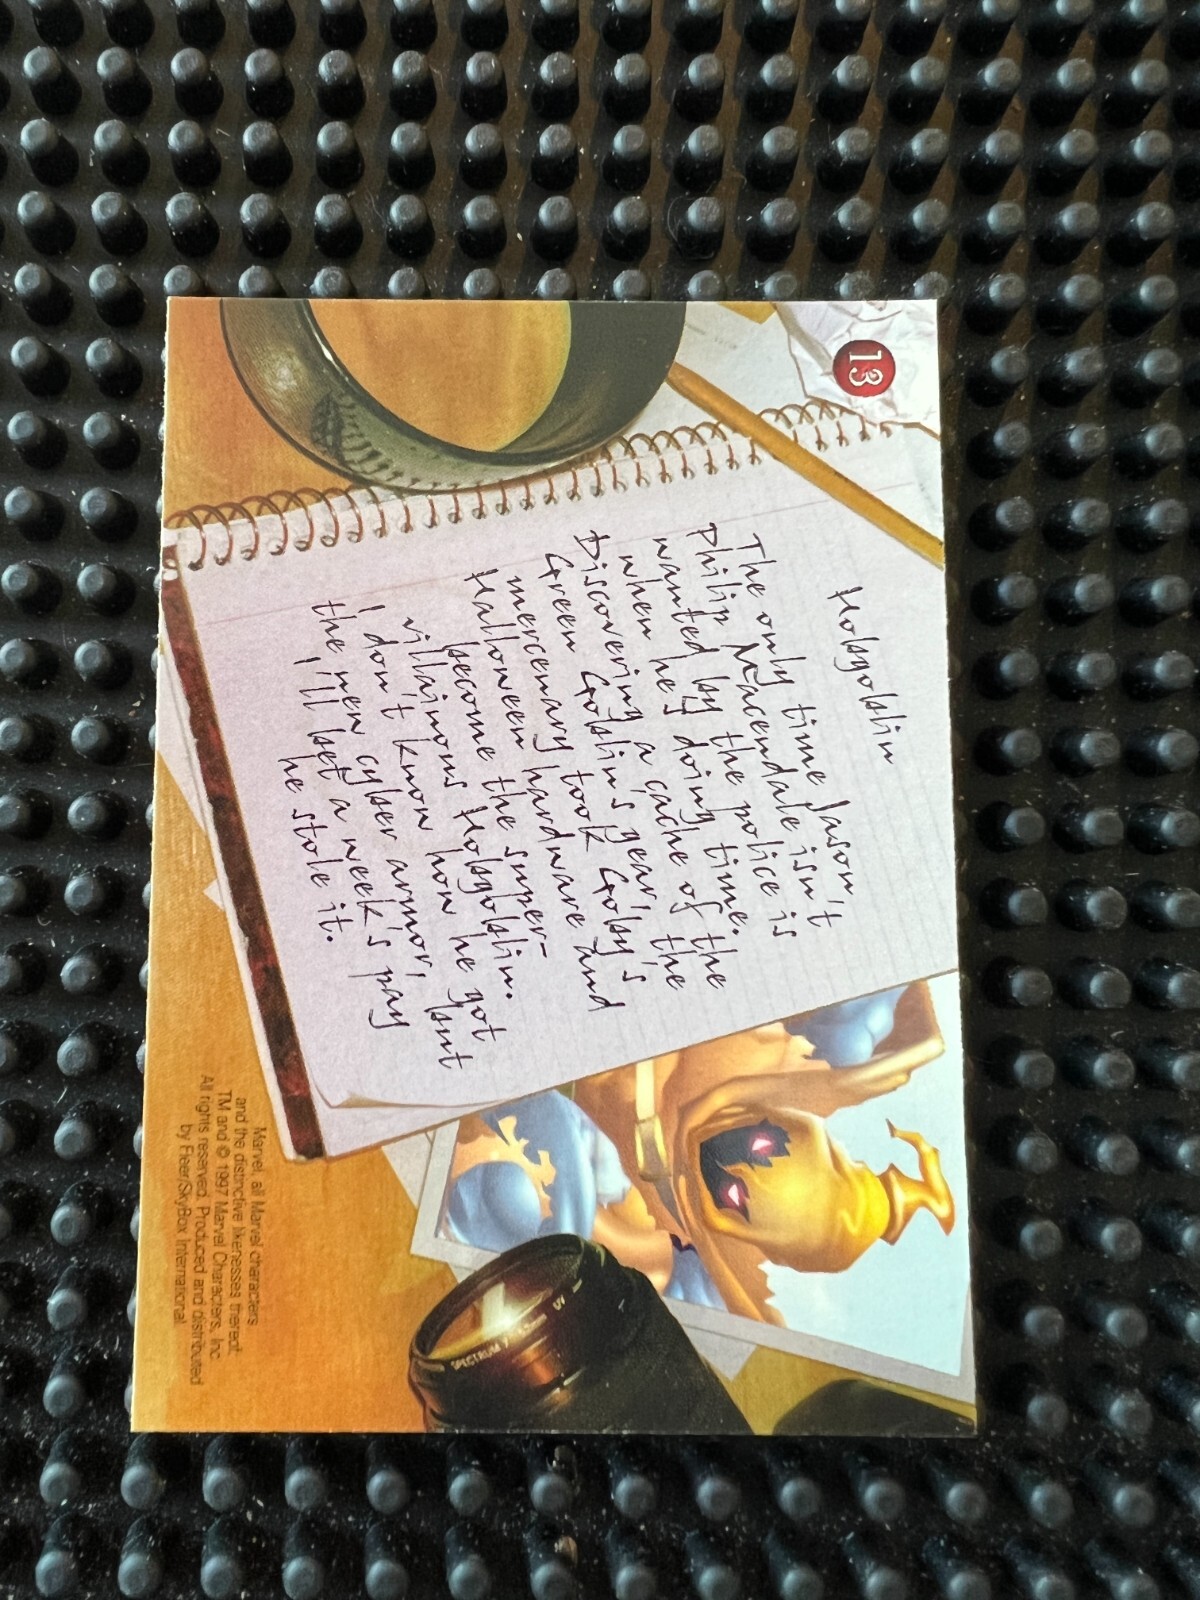 13
Hobgoblin
The only time Jason
Philip Macendale isn't
wanted by the police is
when he's doing time.
Discovering a cache of the
Green Goblin's gear, the
mercenary took Goby's
Halloween hardware and
become the super-
villainous Hobgoblin.
I don't know how he got
the new cyber armor, but
I'll bet a week's pay
he stole it.
SPECTRUM 7
UV
Marvel, all Marvel characters
and the distinctive likenesses thereof:
TM and © 1997 Marvel Characters, Inc.
All rights reserved. Produced and distributed
by Fleer/SkyBox International.